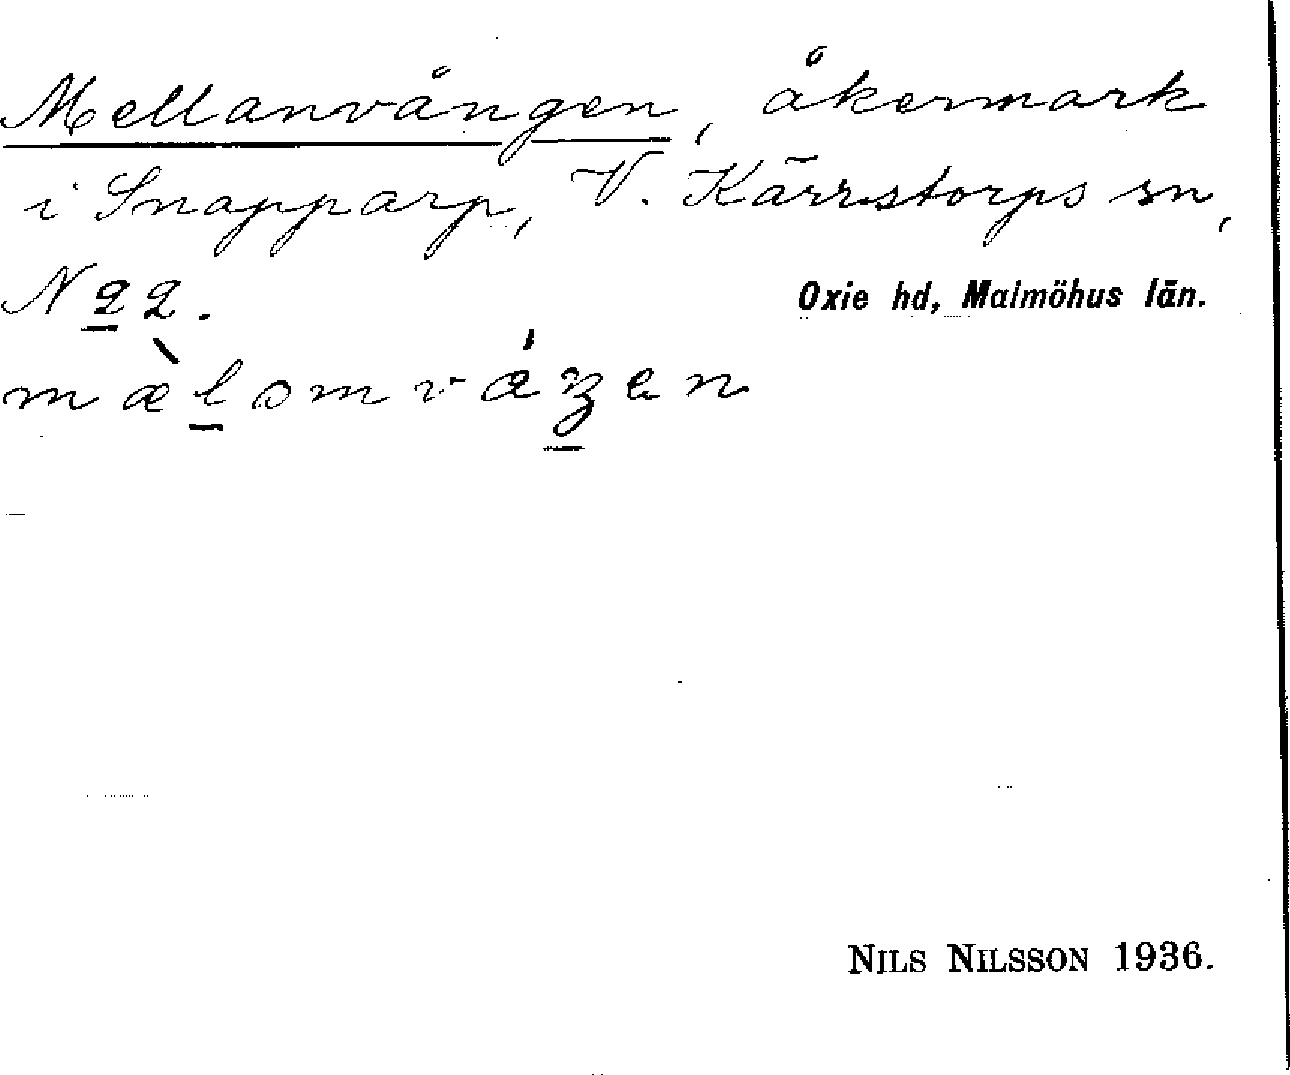 Mellanvången, åkermark
i Snapparp, V. Kärrstorps sn,
N 22.
Oxie hd, Malmöhus län.
NILS NILSSON 1936.